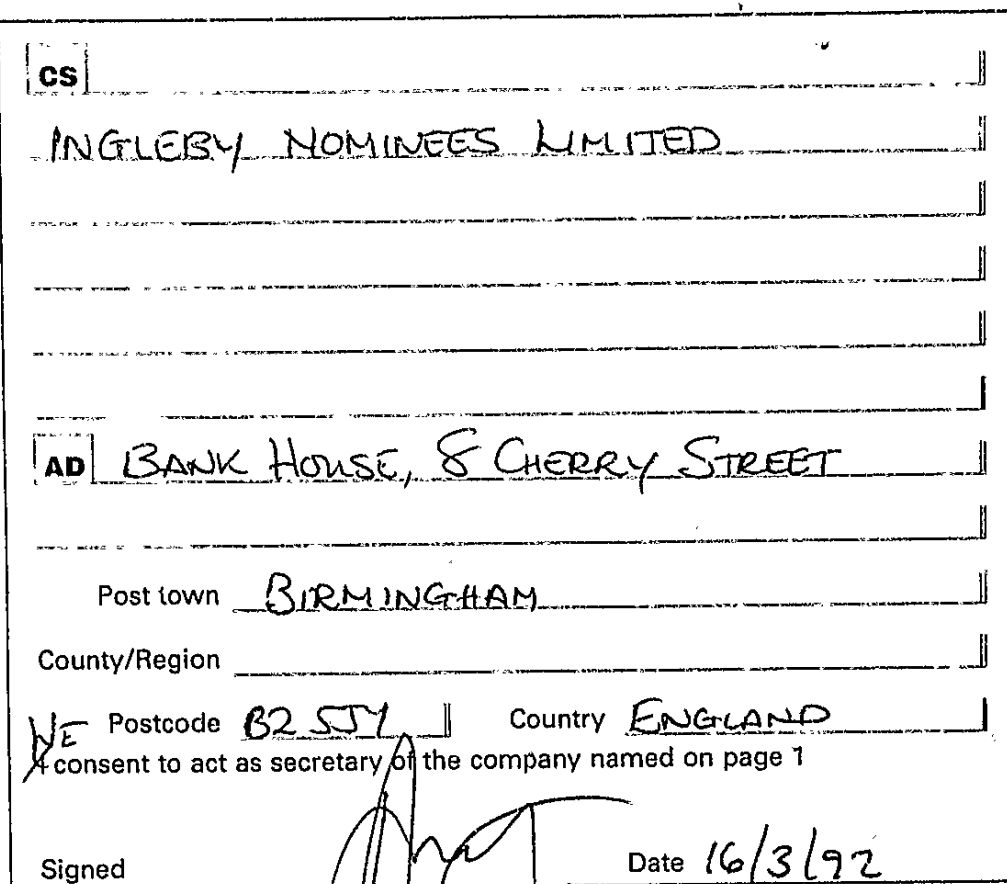 CS
INGLEBY NOMINEES LIMITED
AD BANK HOUSE, 8 CHERRY STREET
Post town BIRMINGHAM
County/Region
Postcode B2 5JY Country ENGLAND
WE consent to act as secretary of the company named on page 1
Signed Date 16/3/92